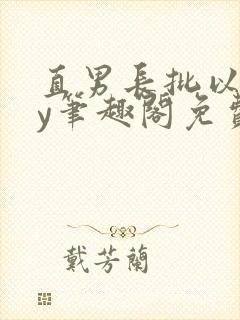 直男長批以
y筆趣閣免費
戴芳蘭